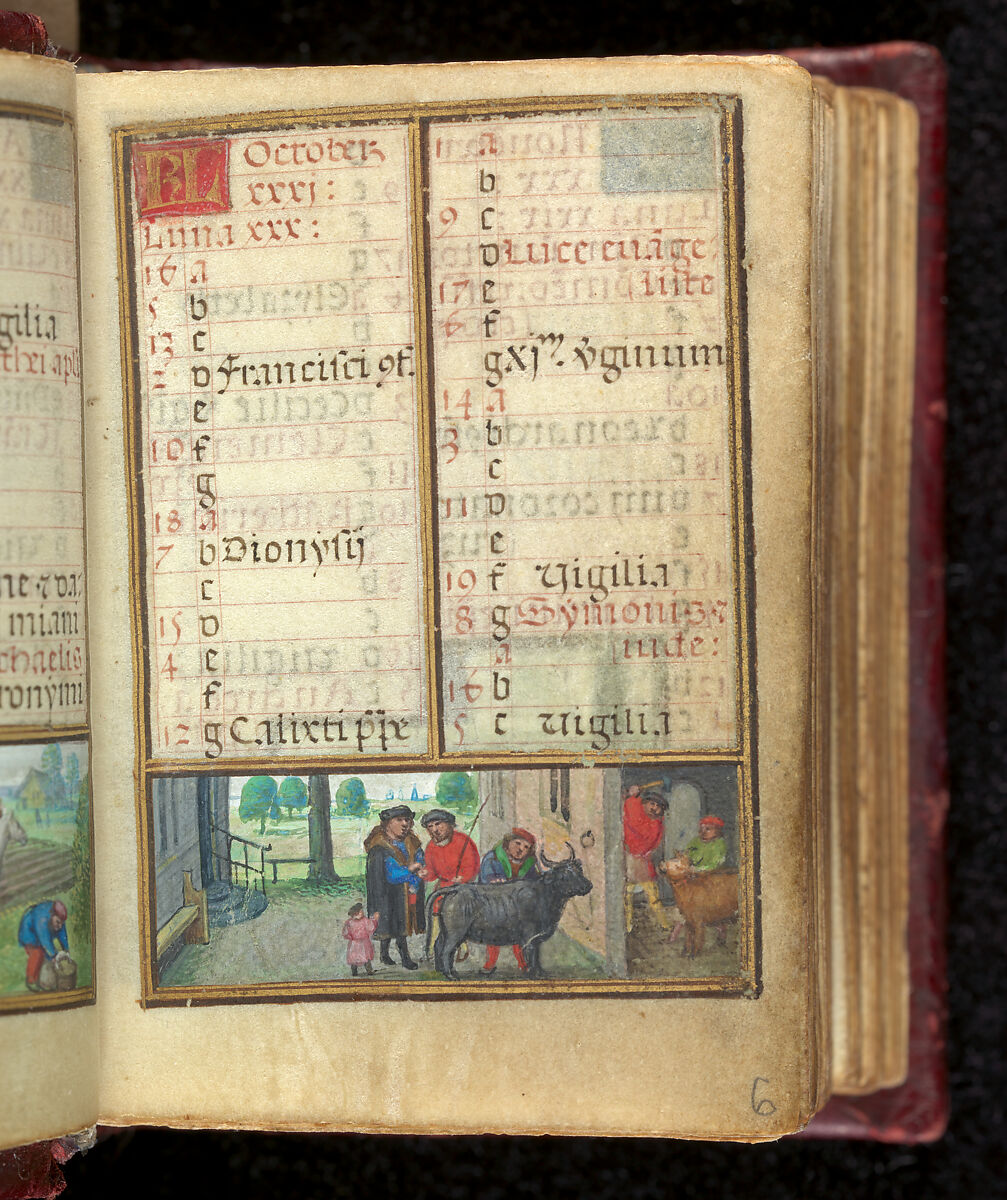 gilia
thei apli
ne ⁊ da
miani
chaelis
ronymi
KL October
xxxj:
Luna xxx:
16 a
5 b
13 c
2 D Francisci 9f.
e
10 f
g
18 a
7 b Dionysij
c
15 D
4 e
f
12 g Calixti ppe
1 a
b
9 c
D Luce euāge
17 e liste
6 f
g Xjᵐ. v̄ginum
14 a
3 b
c
11 D
e
19 f Uigilia
8 g Symonis ⁊
a iude:
16 b
5 c uigilia
6